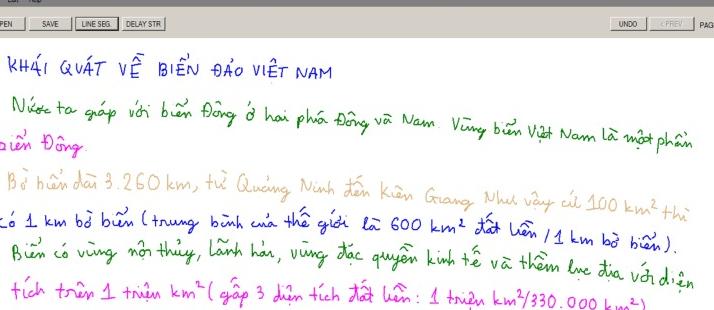 PEN SAVE LINE SEG. DELAY STR UNDO < PREV PAG
KHÁI QUÁT VỀ BIỂN ĐẢO VIỆT NAM
Nước ta giáp với biển Đông ở hai phía Đông và Nam. Vùng biển Việt Nam là một phần
biển Đông.
Bờ biển dài 3.260 km, từ Quảng Ninh đến Kiên Giang Như vậy cứ 100 km² thì
có 1 km bờ biển (trung bình của thế giới là 600 km² đất liền / 1 km bờ biển).
Biển có vùng nội thủy, lãnh hải, vùng đặc quyền kinh tế và thềm lục địa với diện
tích trên 1 triệu km² (gấp 3 diện tích đất liền: 1 triệu km²/330.000 km²)